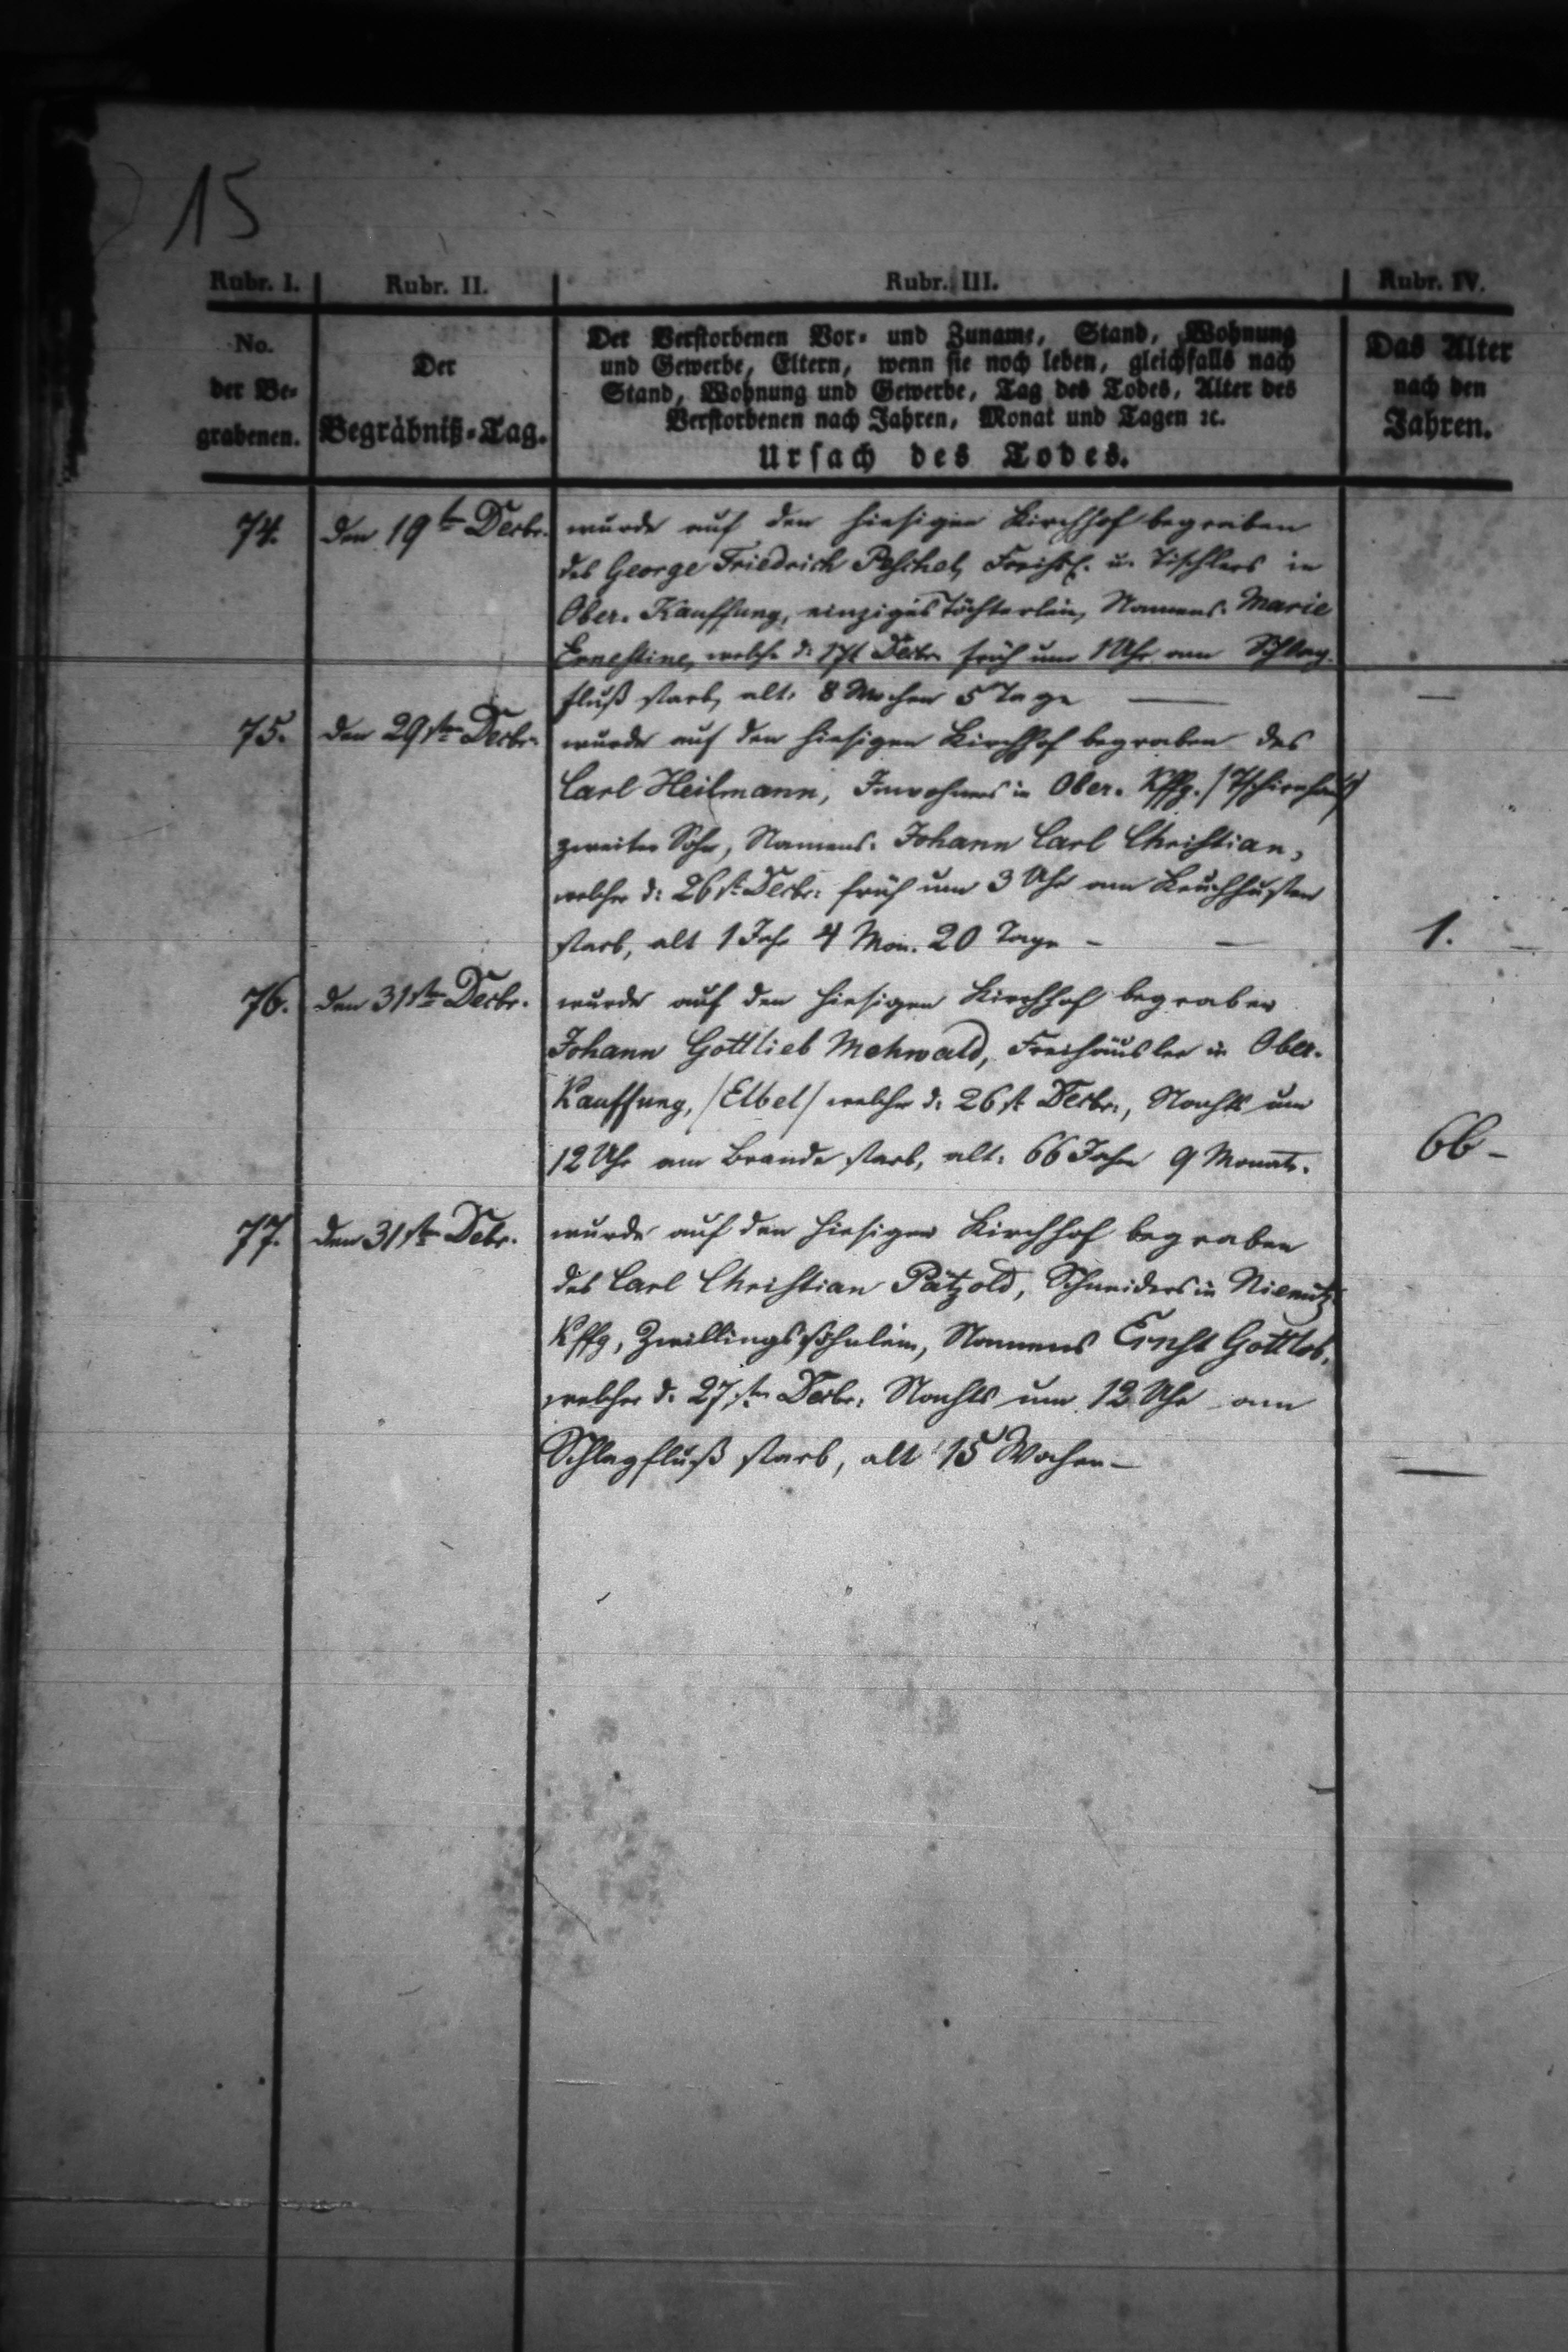 15
Rubr. I. Rubr. II. Rubr. III. Rubr. IV.
No. der Be- grabenen.
Der Begräbniß-Tag.
Der Verstorbenen Vor- und Zuname, Stand, Wohnung
und Gewerbe, Eltern, wenn sie noch leben, gleichfalls nach
Stand, Wohnung und Gewerbe, Tag des Todes, Alter des
Verstorbenen nach Jahren, Monat und Tagen ꝛc.
Ursach des Todes.
Das Alter nach den Jahren.
74. den 19t Decbr. wurde auf den hiesigen Kirchhof begraben
des George Friedrich Peschel, Freihsl. u. Tischlers in
Ober-Kauffung, einziges Töchterlein, Namens: Marie
Ernestine, welche d: 17t Decbr. früh um 1 Uhr am Schlag-
fluß starb, alt: 8 Wochen 5 Tage — —
75. den 29sten Decbr. wurde auf den hiesigen Kirchhof begraben des
Carl Heilmann, Inwohners in Ober-Kffg. /Tschirnhaus/
zweiter Sohn, Namens: Johann Carl Christian,
welcher d: 26st. Decbr: früh um 3 Uhr am Keuchhusten
starb, alt 1 Jahr 4 Mon. 20 Tage – — 1.
76. den 31sten Decbr. wurde auf den hiesigen Kirchhof begraben
Johann Gottlieb Mehwald, Freihäusler in Ober-
Kauffung, /Elbel/ welcher d: 26st Decbr., Nachts um
12 Uhr am Brande starb, alt: 66 Jahr 9 Monate. 66 –
77. den 31sten Debr. wurde auf den hiesigen Kirchhof begraben
des Carl Christian Pätzold, Schneiders in
Kffg, Zwillingssöhnlein, Namens Ernst Gottlob,
welcher d: 27sten Decbr: Nachts um 12 Uhr am
Schlagfluß starb, alt 15 Wochen – —